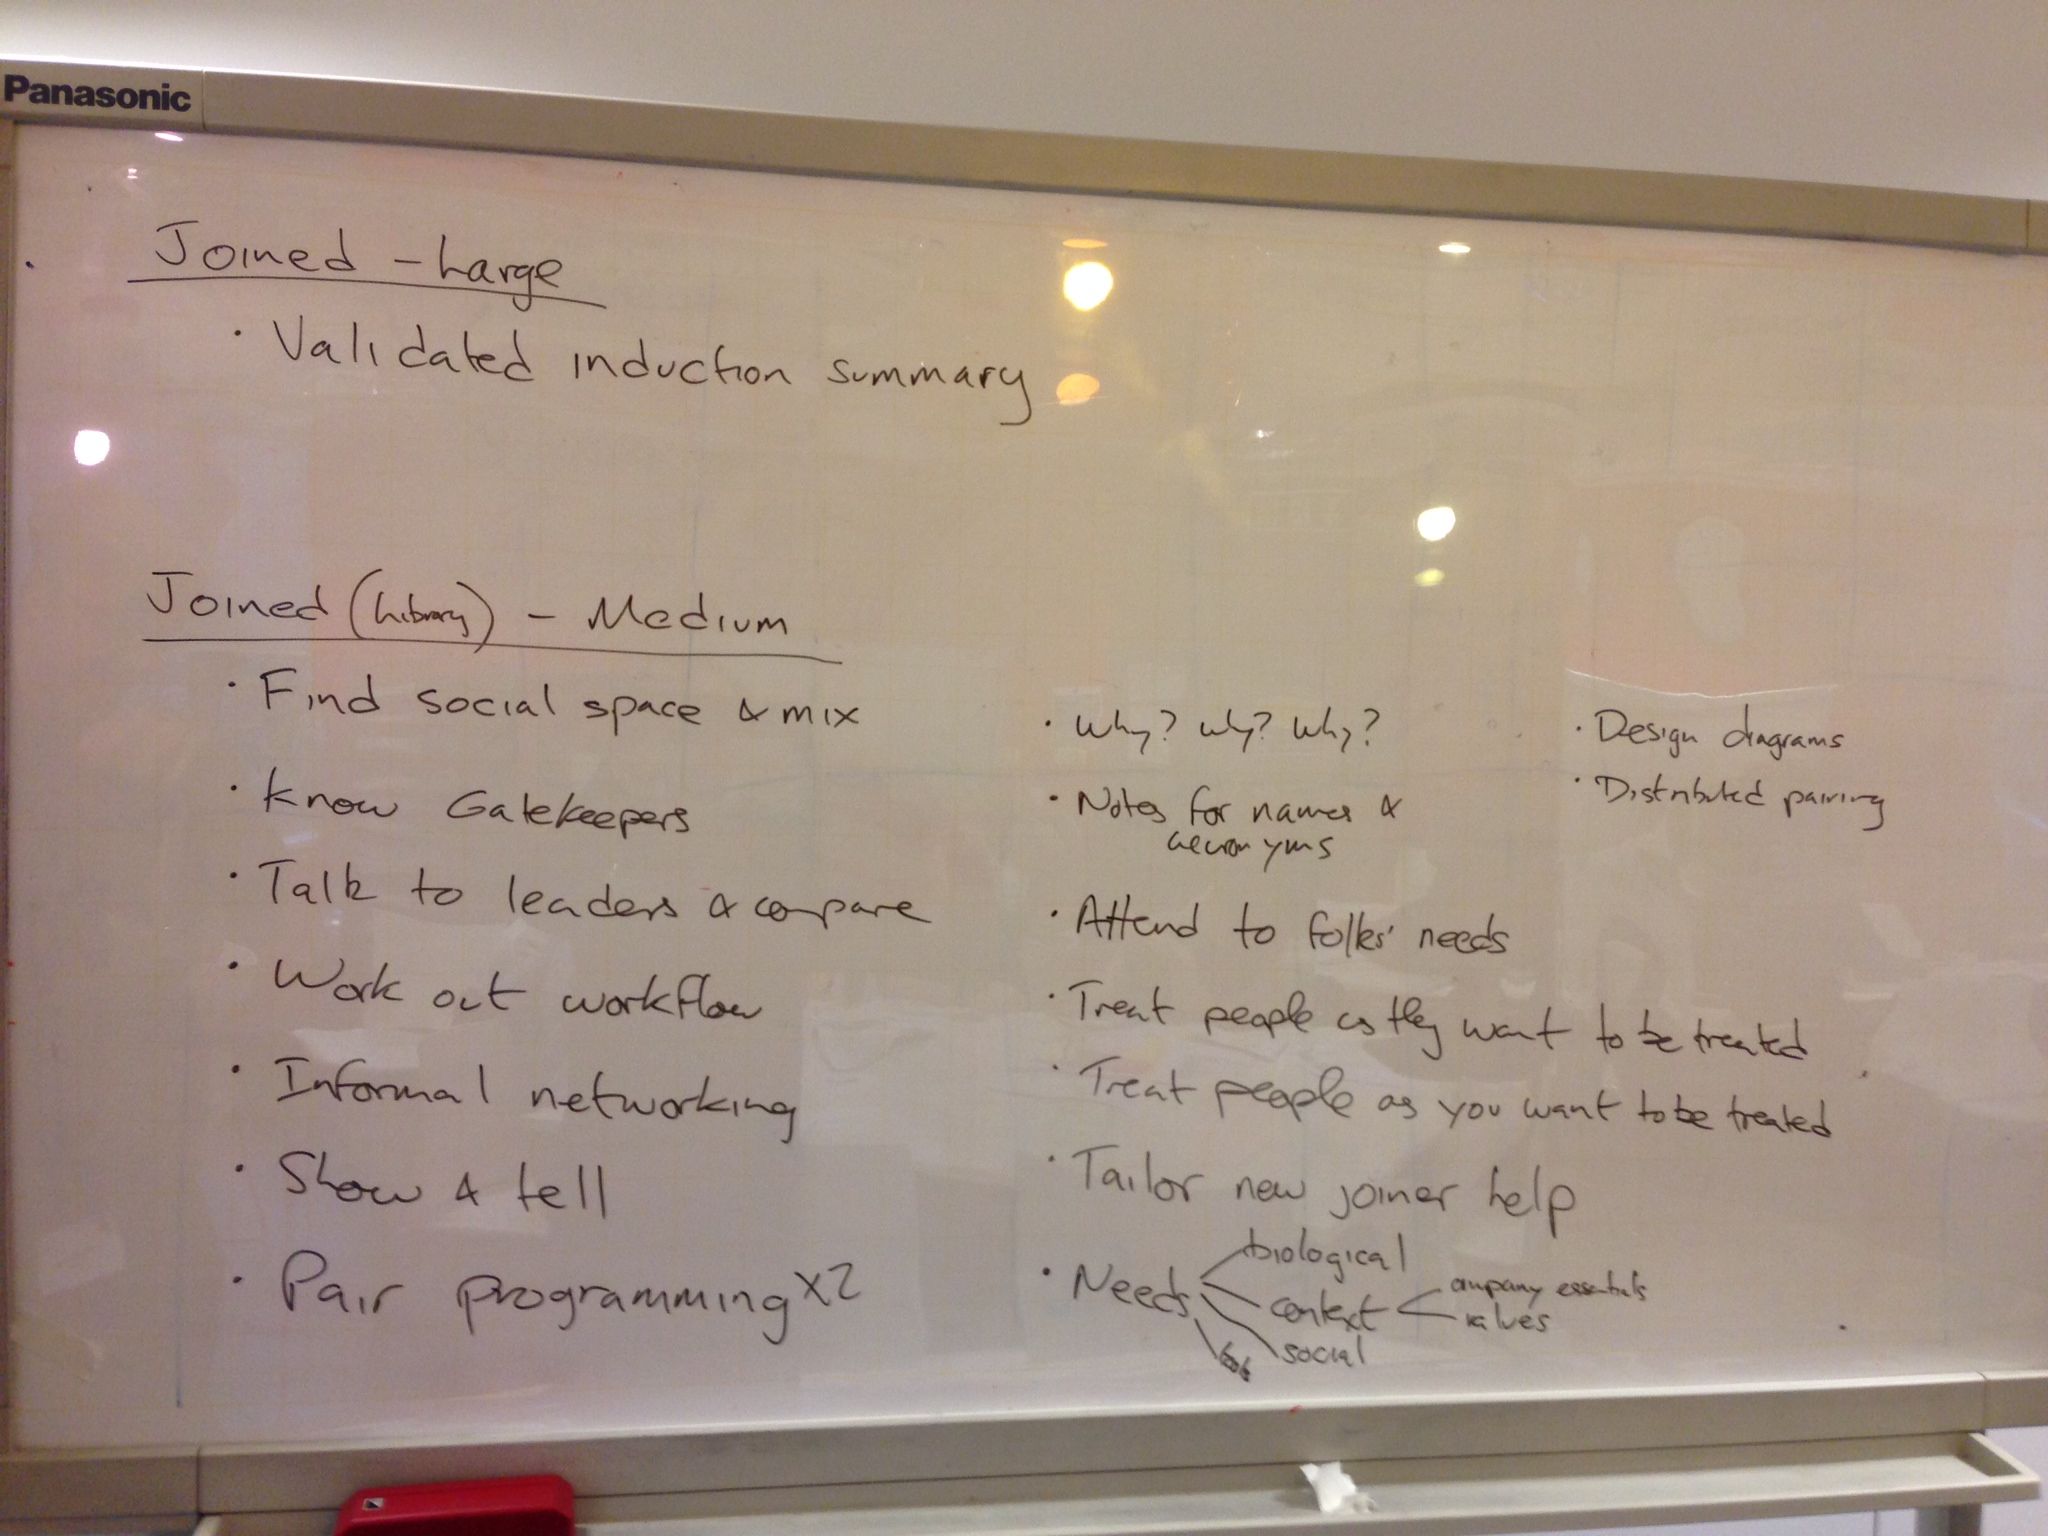 Panasonic
Joined - Large
· Validated induction summary
Joined (Library) - Medium
· Find social space & mix
· Know Gatekeepers
· Talk to leaders & compare
· Work out workflow
· Informal networking
· Show & tell
· Pair programming x2
· Why? Why? Why?
· Notes for names &
acronyms
· Attend to folks' needs
· Treat people as they want to be treated
· Treat people as you want to be treated
· Tailor new joiner help
· Needs
biological
context
company essentials
values
social
· Design diagrams
· Distributed pairing